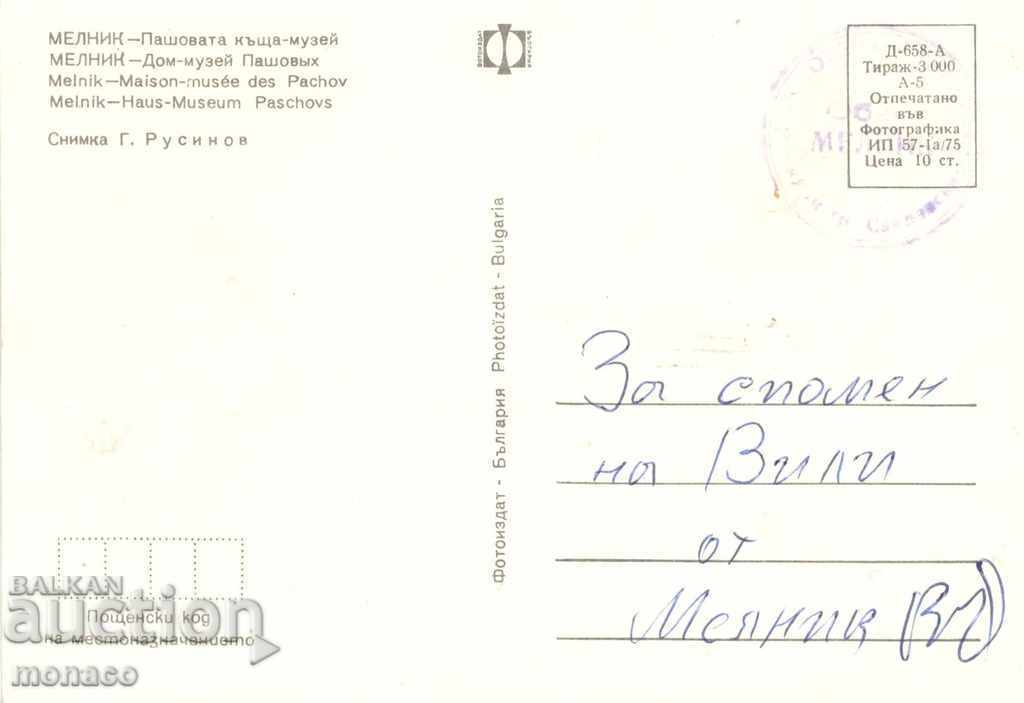 МЕЛНИК—Пашовата къща-музей
МЕЛНИК—Дом-музей Пашовых
Melnik—Maison-musée des Pachov
Melnik—Haus-Museum Paschovs
Снимка Г. Русинов
ФОТОИЗДАТ
БЪЛГАРИЯ
Д-658-А
Тираж-3 000
А-5
Отпечатано
във
Фотографика
ИП 57-1а/75
Цена 10 ст.
Фотоиздат - България Photoïzdat - Bulgaria
За спомен
на Вили
от
Мелник
Пощенски код
на местоназначението
BALKAN
auction
monaco